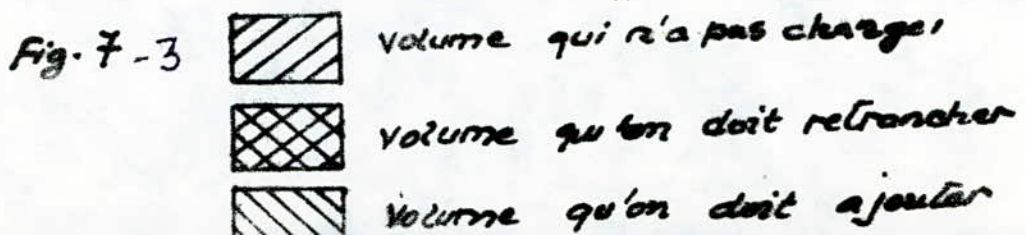 Fig. 7-3 volume qui n'a pas changer
volume qu'on doit retrancher
volume qu'on doit ajouter